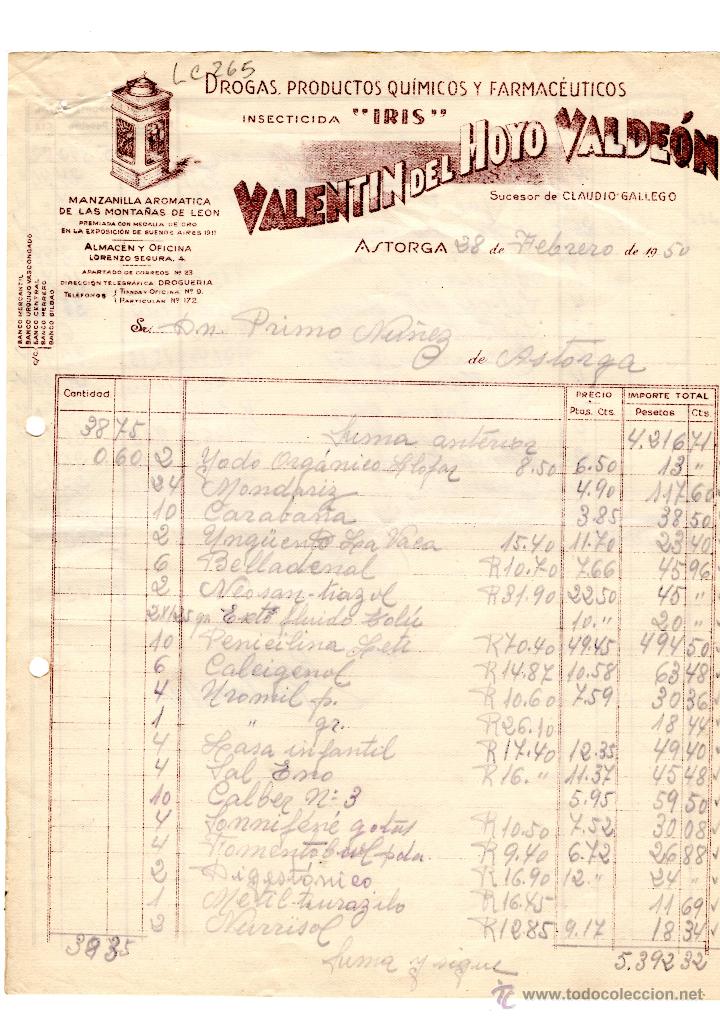 LC 265
DROGAS, PRODUCTOS QUÍMICOS Y FARMACÉUTICOS
INSECTICIDA "IRIS"
VALENTIN DEL HOYO VALDEÓN
Sucesor de CLAUDIO GALLEGO
MANZANILLA AROMATICA
DE LAS MONTAÑAS DE LEON
PREMIADA CON MEDALLA DE ORO
EN LA EXPOSICION DE BUENOS AIRES 1911
ALMACEN Y OFICINA
LORENZO SEGURA, 4
APARTADO DE CORREOS Nº 23
DIRECCIÓN TELEGRÁFICA DROGUERIA
TELÉFONOS { TIENDA Y OFICINA Nº 9.
PARTICULAR Nº 172.
C/C. BANCO MERCANTIL
BANCO URQUIJO VASCONGADO
BANCO CENTRAL
BANCO HERRERO
BANCO BILBAO
ASTORGA 28 de Febrero de 1950
Sr. Dn. Primo Nuñez
de Astorga
Cantidad PRECIO IMPORTE TOTAL
Ptas. Cts. Pesetas Cts.
38 75 Suma anterior 4.216 71
0.60 2 Yodo Orgánico Llofar 8.50 6.50 13 "
24 Mondariz 4.90 117 60
10 Carabaña 3.85 38 50
2 Ungüento La Vaca 15.40 11.70 23 40
6 Belladenal R 10.70 7.66 45 96
2 Neosan-tiazol R 31.90 22.50 45 "
gr Extº fluido Tolú 10." 20 "
10 Penicilina Leti R 70.40 49.45 494 50
6 Calcigenol R 14.87 10.58 63 48
4 Uromil p. R 10.60 7.59 30 36
1 " gr. R 26.10 18 44
4 Lasa infantil R 17.40 12.35 49 40
4 Sal Eno R 16." 11.37 45 48
10 Calber Nº 3 5.95 59 50
4 Sonniféné gotas R 10.50 7.52 30 08
4 pda. R 9.40 6.72 26 88
2 Digestónico R 16.90 12." 24 "
1 R 16.45 11 69
2 R 12.85 9.17 18 34
39 35 Suma y sigue 5.392 32
www.todocoleccion.net